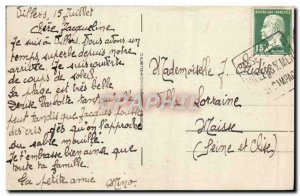 Villers, 15 Juillet
Chère Jacqueline
Je suis à Villers. Nous avons un
temps superbe depuis notre
arrivée. Je suis couverte
de coups de soleil.
La plage est très belle
Denise barbotte tant qu'elle
peut tandis que Jacques pousse
des cris dès qu'on l'approche
du sable mouillé.
Je t'embrasse bien ainsi que
toute ta famille.
Ta petite amie
Mademoiselle J.
Lorraine
Maisse
(Seine et Oise)
15